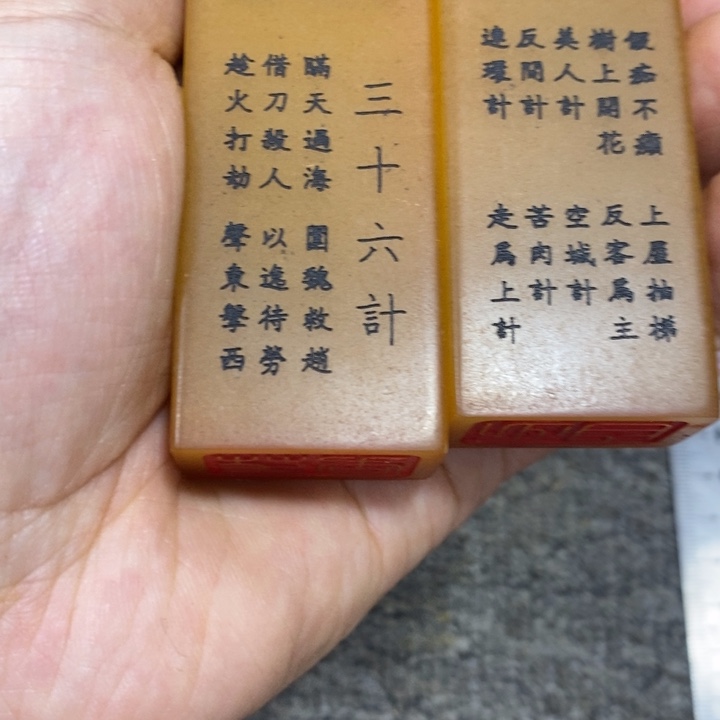 三十六計
瞞天過海 圍魏救趙
借刀殺人 以逸待勞
趁火打劫 聲東擊西
假痴不癲 上屋抽梯
樹上開花 反客爲主
美人計 空城計
反間計 苦肉計
連環計 走爲上計